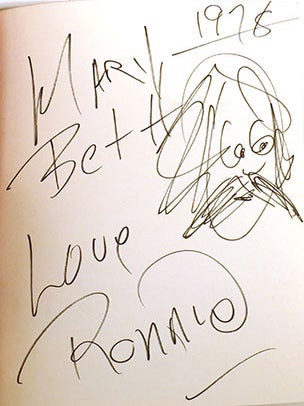 1978
Mark
Bett
Love
Ronald